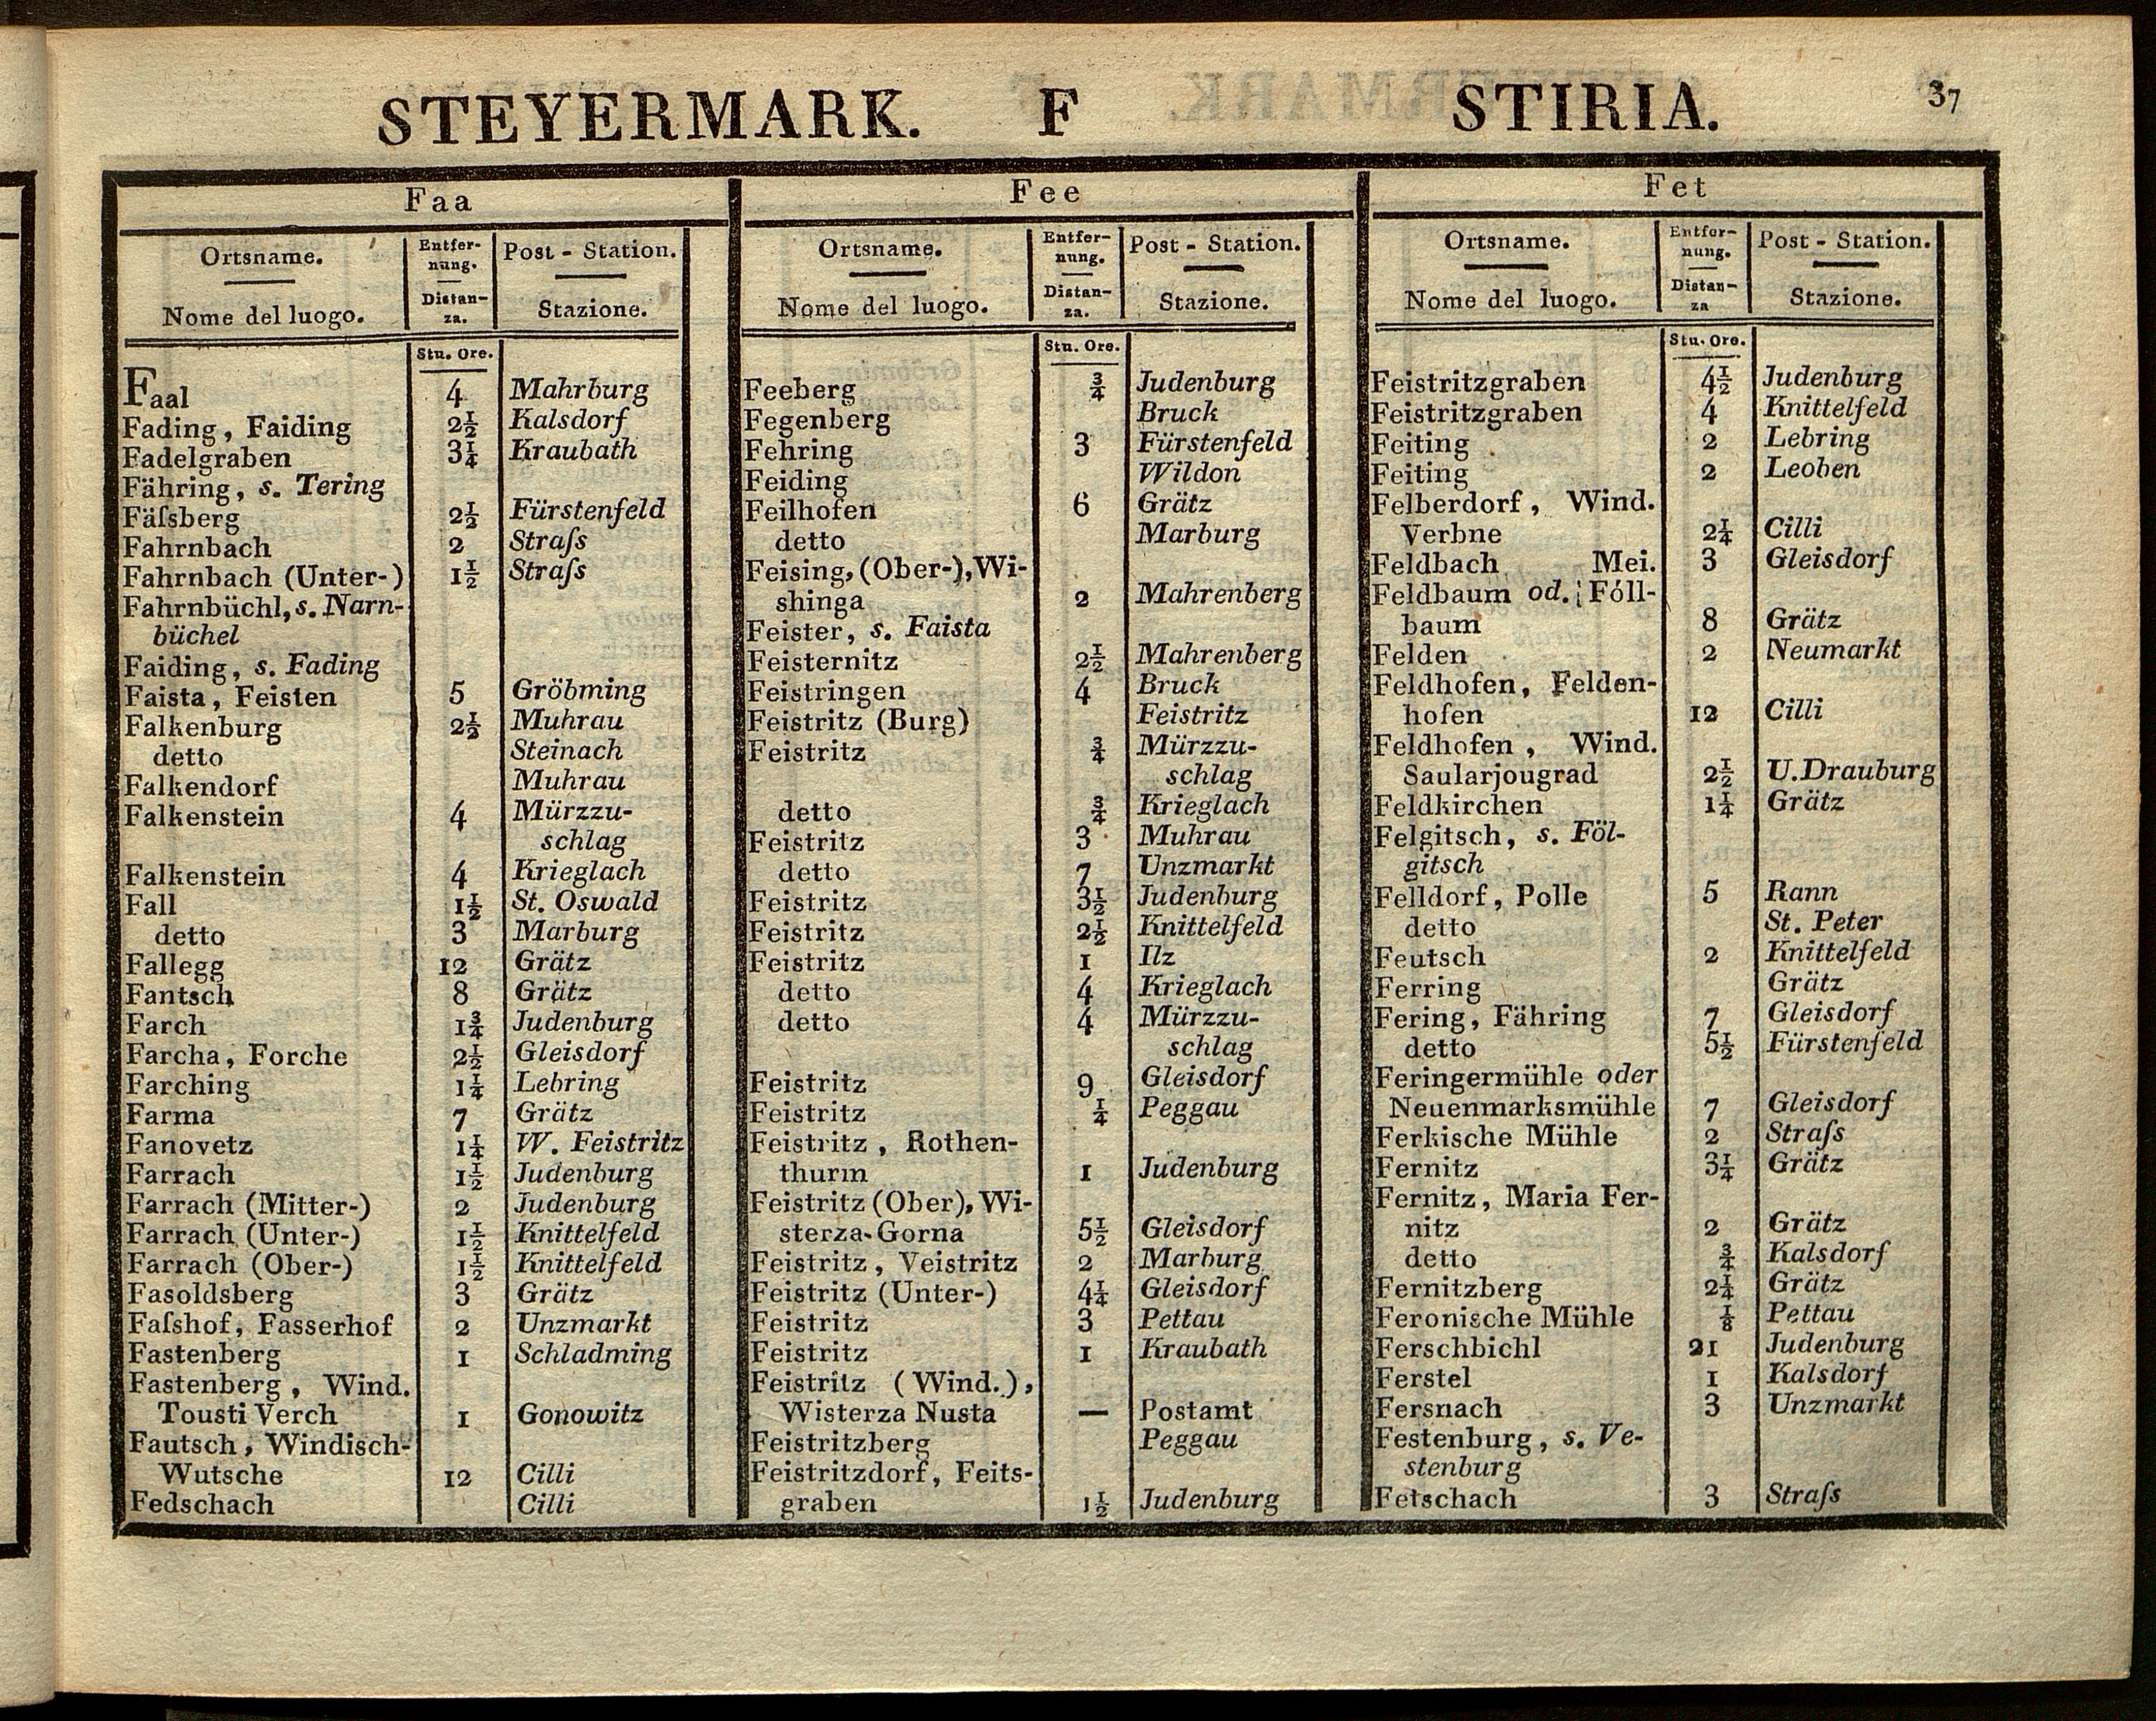 STEYERMARK. F STIRIA. 37
Faa
Ortsname. Entfer- Post - Station.
nung.
Nome del luogo. Distan- Stazione.
za.
Stu. Ore.
Faal 4 Mahrburg
Fading, Faiding 2½ Kalsdorf
Fadelgraben 3¼ Kraubath
Fähring, s. Tering
Fäſsberg 2½ Fürstenfeld
Fahrnbach 2 Straſs
Fahrnbach (Unter-) 1½ Straſs
Fahrnbüchl, s. Narn-
büchel
Faiding, s. Fading
Faista, Feisten 5 Gröbming
Falkenburg 2½ Muhrau
detto Steinach
Falkendorf Muhrau
Falkenstein 4 Mürzzu-
schlag
Falkenstein 4 Krieglach
Fall 1½ St. Oswald
detto 3 Marburg
Fallegg 12 Grätz
Fantsch 8 Grätz
Farch 1¾ Judenburg
Farcha, Forche 2½ Gleisdorf
Farching 1¼ Lebring
Farma 7 Grätz
Fanovetz 1¼ W. Feistritz
Farrach 1½ Judenburg
Farrach (Mitter-) 2 Judenburg
Farrach (Unter-) 1½ Knittelfeld
Farrach (Ober-) 1½ Knittelfeld
Fasoldsberg 3 Grätz
Faſshof, Fasserhof 2 Unzmarkt
Fastenberg 1 Schladming
Fastenberg, Wind.
Tousti Verch 1 Gonowitz
Fautsch, Windisch-
Wutsche 12 Cilli
Fedschach Cilli
Fee
Ortsname. Entfer- Post - Station.
nung.
Nome del luogo. Distan- Stazione.
za.
Stu. Ore.
Feeberg ¾ Judenburg
Fegenberg Bruck
Fehring 3 Fürstenfeld
Feiding Wildon
Feilhofen 6 Grätz
detto Marburg
Feising, (Ober-), Wi-
shinga 2 Mahrenberg
Feister, s. Faista
Feisternitz 2½ Mahrenberg
Feistringen 4 Bruck
Feistritz (Burg) Feistritz
Feistritz ¾ Mürzzu-
schlag
detto ¾ Krieglach
Feistritz 3 Muhrau
detto 7 Unzmarkt
Feistritz 3½ Judenburg
Feistritz 2½ Knittelfeld
Feistritz 1 Ilz
detto 4 Krieglach
detto 4 Mürzzu-
schlag
Feistritz 9 Gleisdorf
Feistritz ¼ Peggau
Feistritz, Rothen-
thurm 1 Judenburg
Feistritz (Ober), Wi-
sterza-Gorna 5½ Gleisdorf
Feistritz, Veistritz 2 Marburg
Feistritz (Unter-) 4¼ Gleisdorf
Feistritz 3 Pettau
Feistritz 1 Kraubath
Feistritz (Wind.),
Wisterza Nusta — Postamt
Feistritzberg Peggau
Feistritzdorf, Feits-
graben 1½ Judenburg
Fet
Ortsname. Entfer- Post - Station.
nung.
Nome del luogo. Distan- Stazione.
za
Stu. Ore.
Feistritzgraben 4½ Judenburg
Feistritzgraben 4 Knittelfeld
Feiting 2 Lebring
Feiting 2 Leoben
Felberdorf, Wind.
Verbne 2¼ Cilli
Feldbach Mei. 3 Gleisdorf
Feldbaum od. Föll-
baum 8 Grätz
Felden 2 Neumarkt
Feldhofen, Felden-
hofen 12 Cilli
Feldhofen, Wind.
Saularjougrad 2½ U.Drauburg
Feldkirchen 1¼ Grätz
Felgitsch, s. Föl-
gitsch
Felldorf, Polle 5 Rann
detto St. Peter
Feutsch 2 Knittelfeld
Ferring Grätz
Fering, Fähring 7 Gleisdorf
detto 5½ Fürstenfeld
Feringermühle oder
Neuenmarksmühle 7 Gleisdorf
Ferkische Mühle 2 Straſs
Fernitz 3¼ Grätz
Fernitz, Maria Fer-
nitz 2 Grätz
detto ¾ Kalsdorf
Fernitzberg 2¼ Grätz
Feronische Mühle ⅛ Pettau
Ferschbichl 21 Judenburg
Ferstel 1 Kalsdorf
Fersnach 3 Unzmarkt
Festenburg, s. Ve-
stenburg
Fetschach 3 Straſs